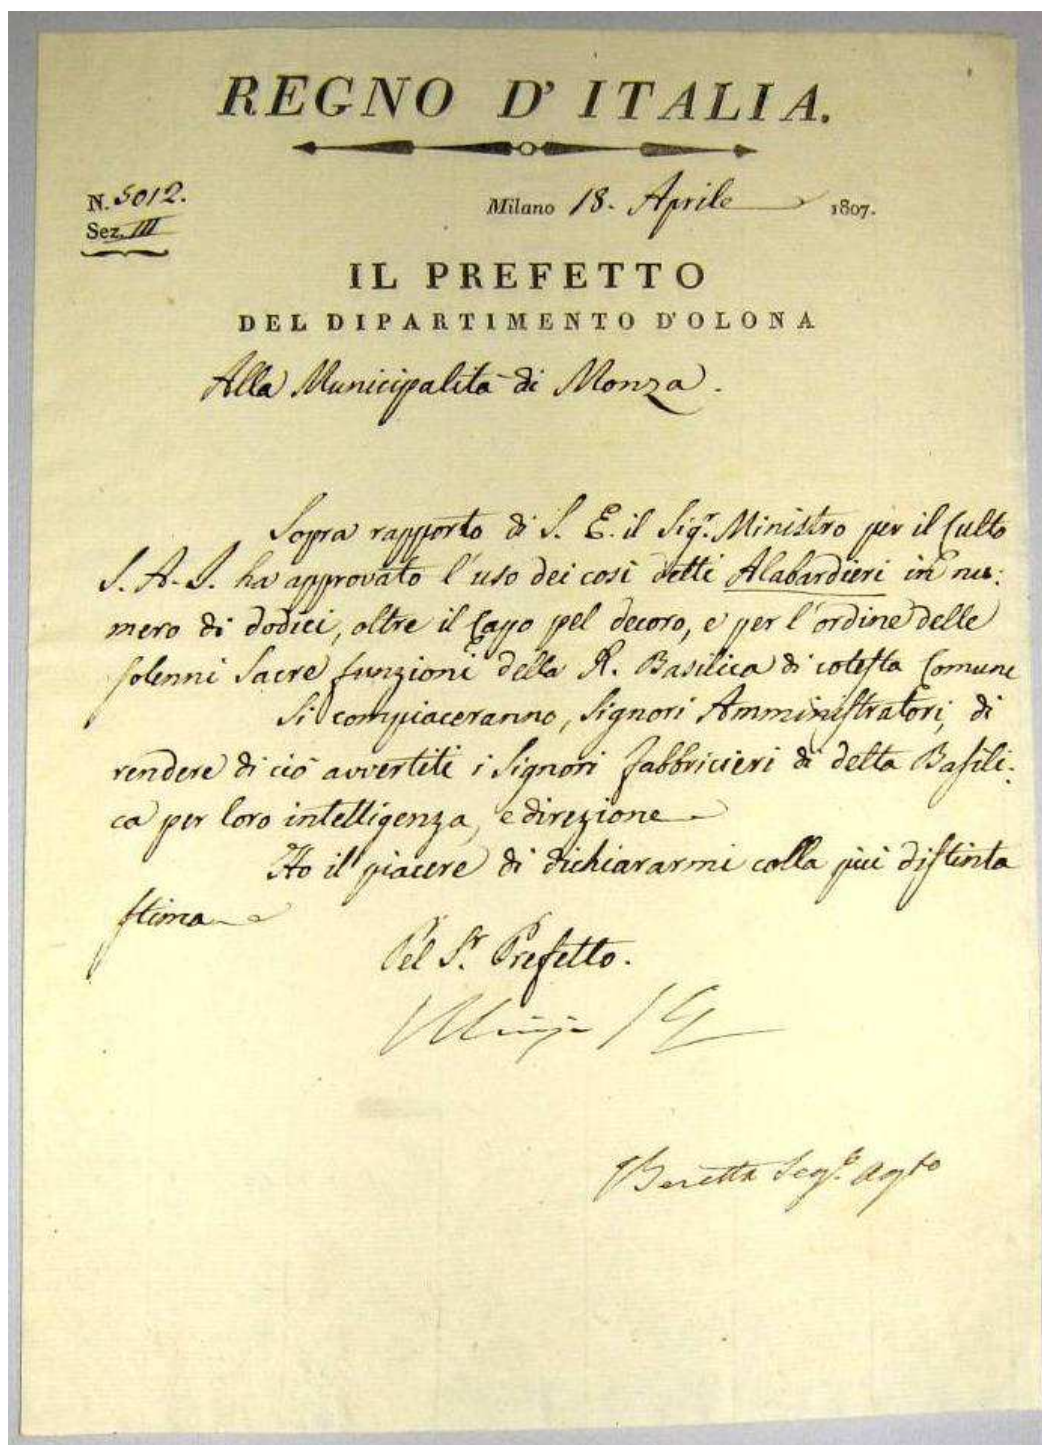 REGNO D' ITALIA.
N. 5012.
Sez. III
Milano 18. Aprile 1807.
IL PREFETTO
DEL DIPARTIMENTO D'OLONA
Alla Municipalità di Monza.
Sopra rapporto di S. E. il Sigr. Ministro per il Culto
S. A. I. ha approvato l'uso dei così detti Alabardieri in nu:
mero di dodici, oltre il Capo pel decoro, e per l'ordine delle
solenni Sacre funzioni della R. Basilica di cotesta Comune
Si compiaceranno, Signori Amministratori, di
rendere di ciò avvertiti i Signori Fabbricieri di detta Basili:
ca per loro intelligenza, e direzione
Ho il piacere di dichiararmi colla più distinta
stima
Pel Sr. Prefetto.
Beretta Segr. Aggto